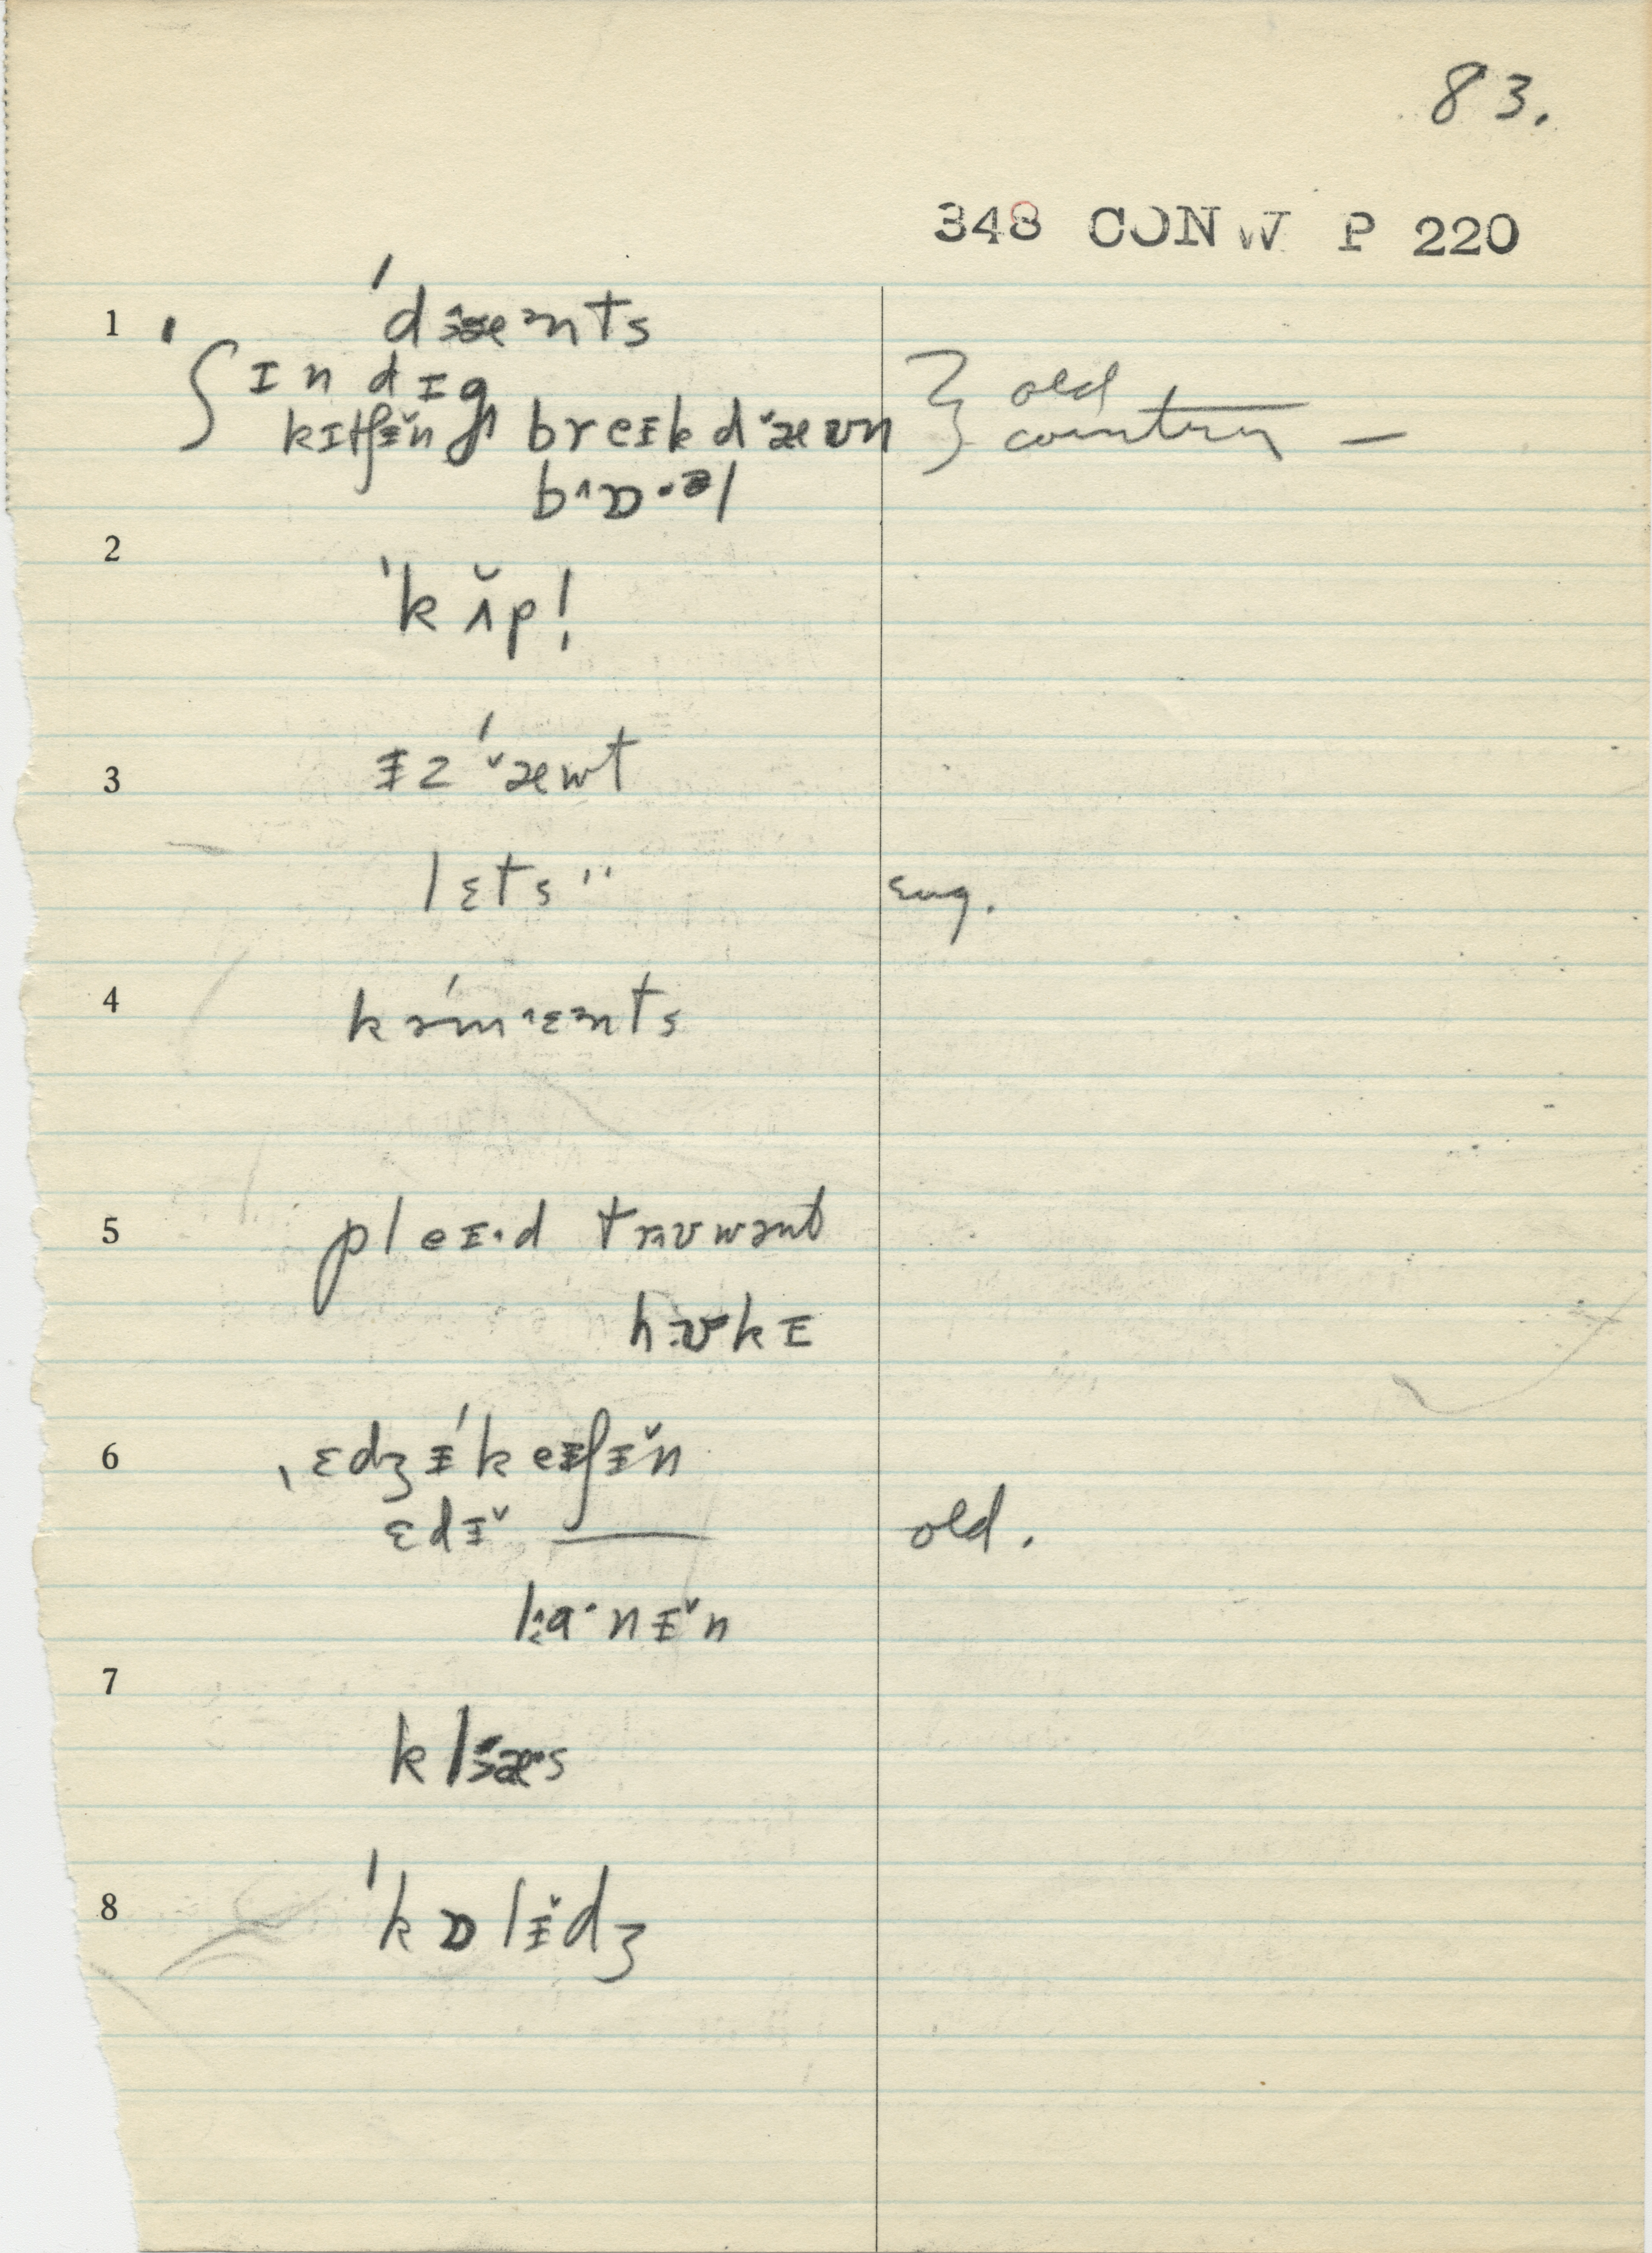 83.
348 CONW P 220
1
ˈdæənts
ɪn dɪg
kɪtʃɪ̆n breɪkdæʊn
} old country –
2
ˈkʌ̆p!
3
ɪz ˈæwt
lɛts " eng.
4
kəmˈɛənts
5
pleɪ·d
hʊkɪ
6
ˌɛdʒɪˈkeɪʃɪ̆n
ɛdɪ̆ —— old.
7
klæs
8
ˈkɒlɪ̆dʒ